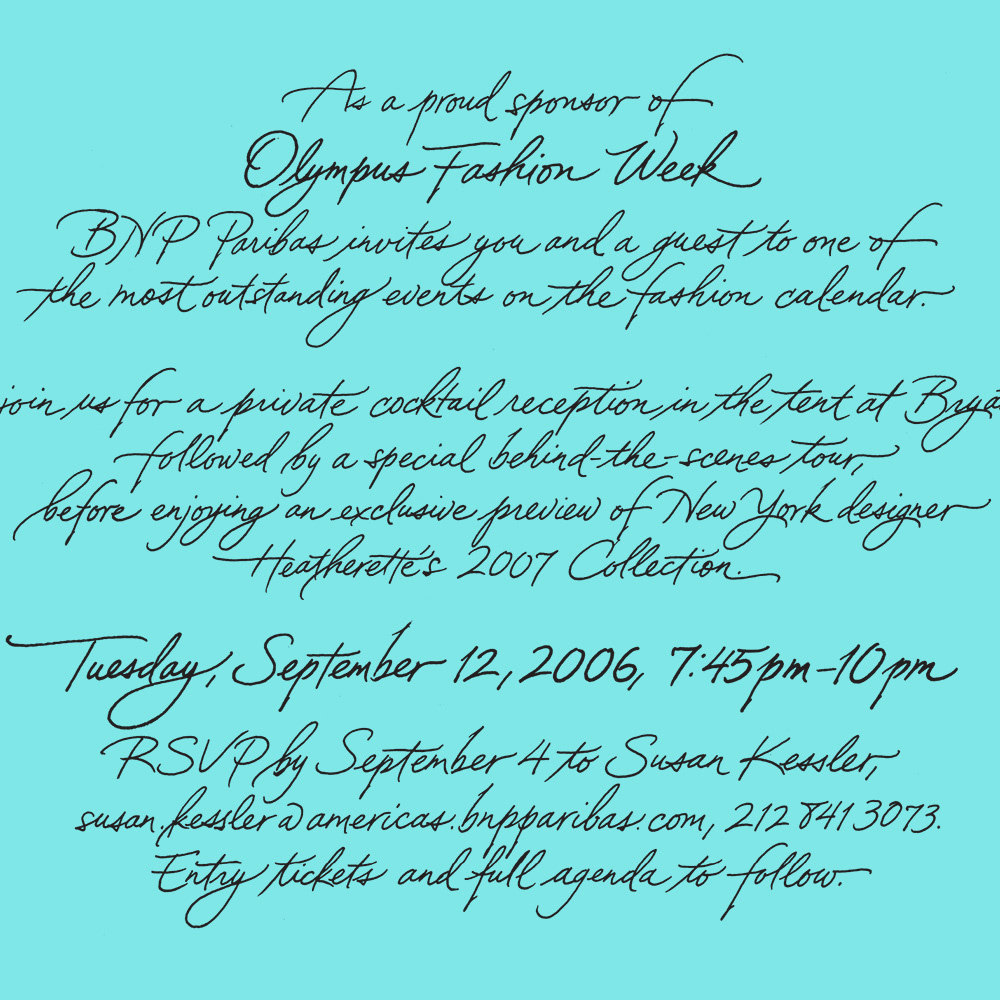 As a proud sponsor of
Olympus Fashion Week
BNP Paribas invites you and a guest to one of
the most outstanding events on the fashion calendar.
join us for a private cocktail reception in the tent at
followed by a special behind-the-scenes tour,
before enjoying an exclusive preview of New York designer
Heatherette's 2007 Collection.
Tuesday, September 12, 2006, 7:45pm-10pm
RSVP by September 4 to Susan Kessler,
susan.kessler@americas.bnpparibas.com, 212 841 3073.
Entry tickets and full agenda to follow.